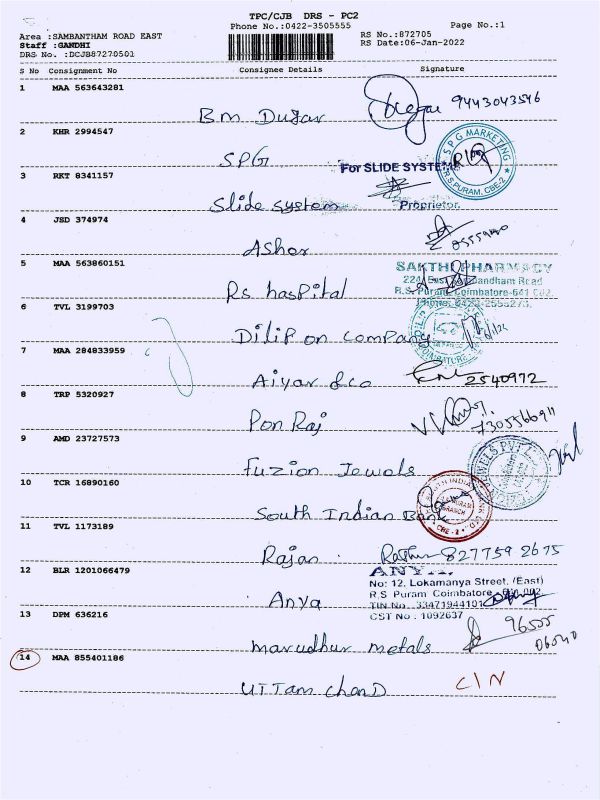 TPC/CJB DRS - PC2
Phone No.:0422-3505555
Page No.:1
Area :SAMBANTHAM ROAD EAST
Staff :GANDHI
DRS No. :DCJB87270501
RS No.:872705
RS Date:06-Jan-2022
S No Consignment No Consignee Details Signature
1 MAA 563643281
Bm Dugar 9443043546
2 KHR 2994547
SPG
SPG MARKETING
R.S.PURAM, CBE-2
3 RKT 8341157
For SLIDE SYSTEM
Slide system
Proprietor.
4 JSD 374974
Asher
5 MAA 563860151
SAKTHI PHARMACY
Rs haspital
R.S. Puram Coimbatore-641 002.
6 TVL 3199703
Dilip on company
7 MAA 284833959
Aiyar & co 2540972
8 TRP 5320927
Pon Raj 7305566911
9 AMD 23727573
Fuzion Jewals
10 TCR 16890160
South Indian Bank
CBE-2
11 TVL 1173189
Rajan 827759 2675
12 BLR 1201066479
No: 12, Lokamanya Street, (East)
R.S Puram Coimbatore
Anya
TIN No. 33471944101
CST No : 1092637
13 DPM 636216
marudhur metals 96555
06540
14 MAA 855401186
Uttam chanD CIN